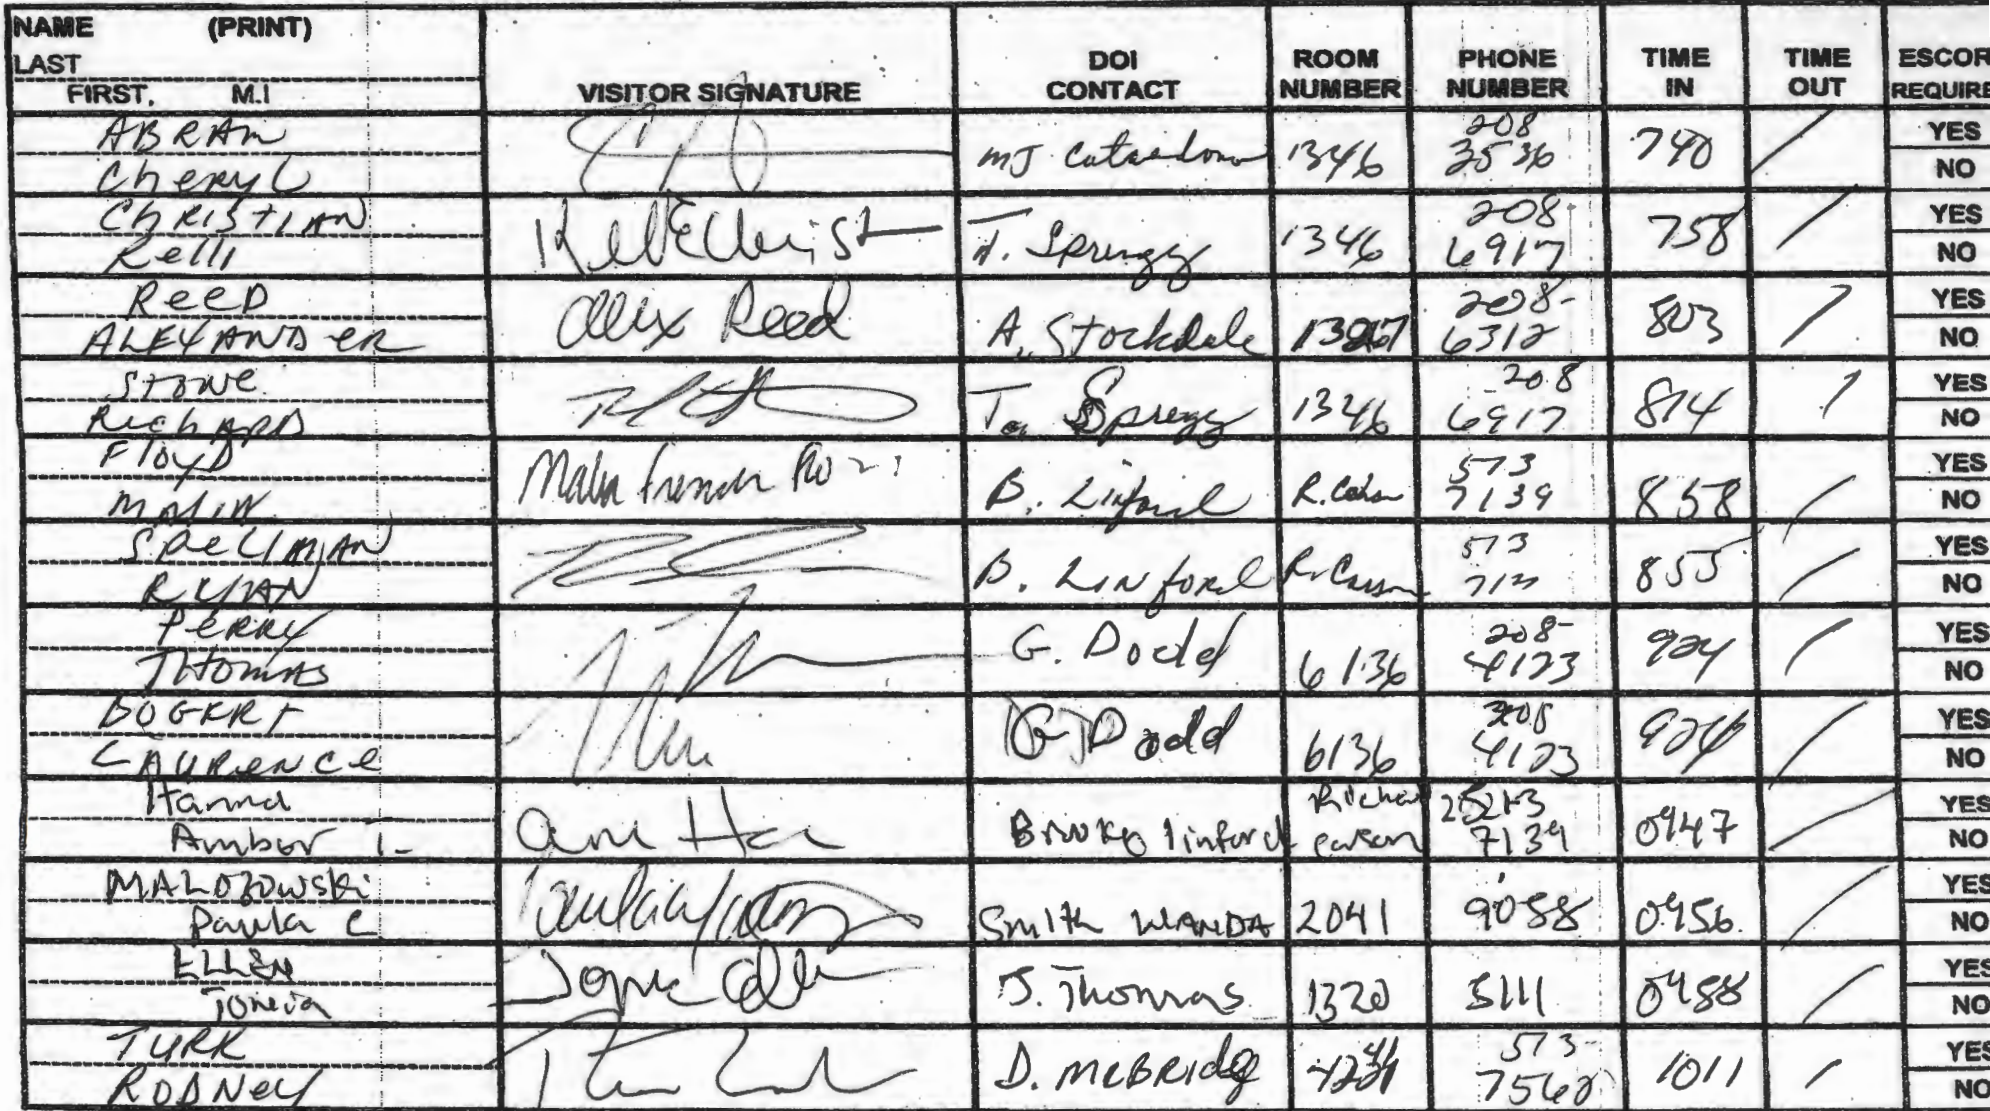 NAME (PRINT)
LAST
FIRST, M.I
VISITOR SIGNATURE
DOI
CONTACT
ROOM
NUMBER
PHONE
NUMBER
TIME
IN
TIME
OUT
ESCOR
REQUIRE
ABRAM
Cheryl
MJ
1346
208
3536
740
YES
NO
CHRISTIAN
Kelli
T. Spriggs
1346
208-
6917
758
YES
NO
Reed
ALEXANDER
Alex Reed
A. Stockdale
208-
6312
803
YES
NO
Stowe
Richard
Spriggs
1346
208
6917
814
YES
NO
Floyd
MALIN
Malin
B. Linford
573
7139
858
YES
NO
Spellman
RYAN
B. Linford
573
855
YES
NO
Perry
Thomas
G. Dodd
6136
208-
4123
924
YES
NO
BOGERT
LAURENCE
G Dodd
6136
208
4123
924
YES
NO
Hanna
Amber T-
Brooke linford
7139
0947
YES
NO
MALOZOWSKI
Paula C
Smith WANDA
2041
9088
0956
YES
NO
ELLEN
J. Thomas
1320
5111
YES
NO
TURK
RODNEY
D. McBRIDE
573-
7560
1011
YES
NO